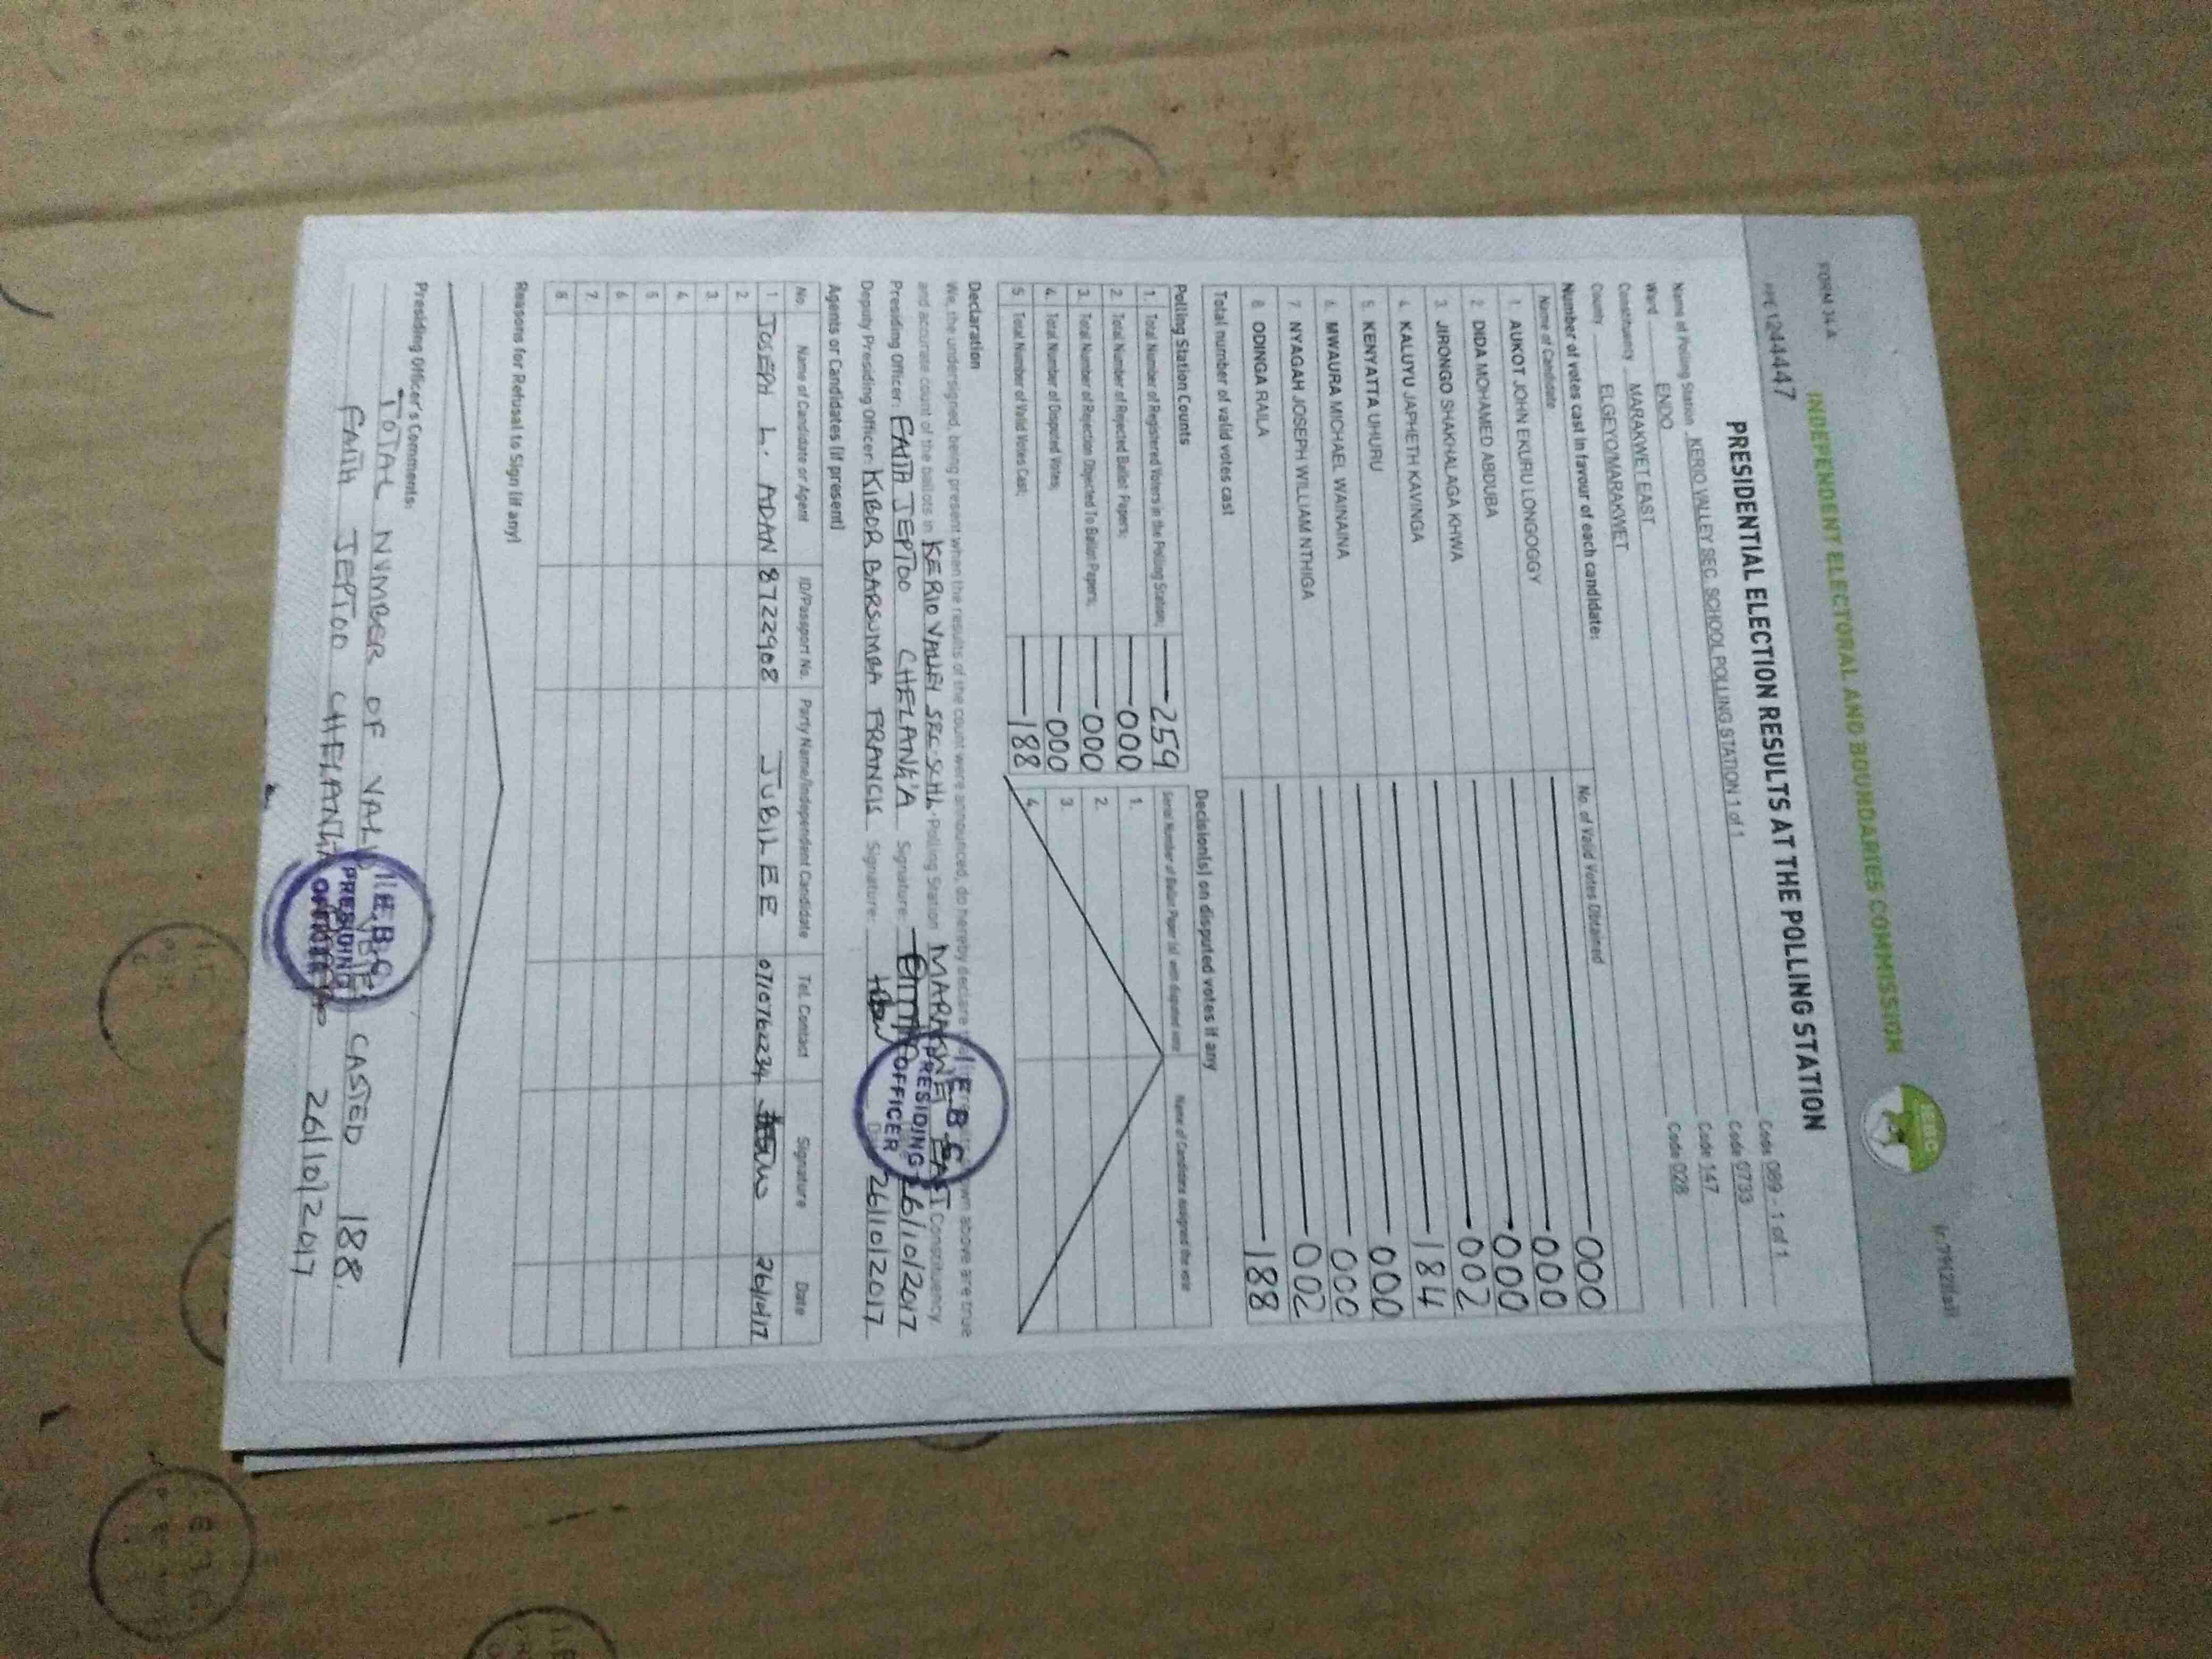 FORM 34 A
INDEPENDENT ELECTORAL AND BOUNDARIES COMMISSION
IEBC
PRESIDENTIAL ELECTION RESULTS AT THE POLLING STATION
Name of Polling Station KERIO VALLEY SEC. SCHOOL POLLING STATION 1 of 1 Code 089 - 1 of 1
Ward ENDO Code 0733
Constituency MARAKWET EAST Code 147
County ELGEYO/MARAKWET Code 028
Number of votes cast in favour of each candidate:
Name of Candidate No. of Valid Votes Obtained
1. AUKOT JOHN EKURU LONGOGGY 000
2. DIDA MOHAMED ABDUBA 000
3. JIRONGO SHAKHALAGA KHWA 000
4. KALUYU JAPHETH KAVINGA 002
5. KENYATTA UHURU 184
6. MWAURA MICHAEL WAINAINA 000
7. NYAGAH JOSEPH WILLIAM NTHIGA 000
8. ODINGA RAILA 002
Total number of valid votes cast 188
Polling Station Counts
1. Total Number of Registered Voters in the Polling Station; 259
2. Total Number of Rejected Ballot Papers; 000
3. Total Number of Rejection Objected To Ballot Papers; 000
4. Total Number of Disputed Votes; 000
5. Total Number of Valid Votes Cast; 188
Decision(s) on disputed votes if any
Serial Number of Ballot Paper (s) with disputed vote Name of Candidate assigned the vote
1.
2.
3.
4.
Declaration
We, the undersigned, being present when the results of the count were announced, do hereby declare above are true
and accurate count of the ballots in KERIO VALLEY SEC. SCHL. Polling Station MARAKWET EAST Constituency.
Presiding Officer: FAITH JEPTOO CHELANG'A Signature: 26/10/2017
Deputy Presiding Officer: KIBOR BARSUMBA FRANCIS Signature: 26/10/2017
I.E.B.C
PRESIDING
OFFICER
Agents or Candidates (if present)
No. Name of Candidate or Agent ID/Passport No. Party Name/Independent Candidate Tel. Contact Signature Date
1 JOSEPH L. ADAN 8722908 JUBILEE 0710762234 26/10/17
2.
3.
4.
5
6
7.
8
Reasons for Refusal to Sign (if any)
Presiding Officer's Comments:
TOTAL NUMBER OF CASTED 188.
FAITH JEPTOO CHELANG'A 26/10/2017
I.E.B.C
PRESIDING
OFFICER